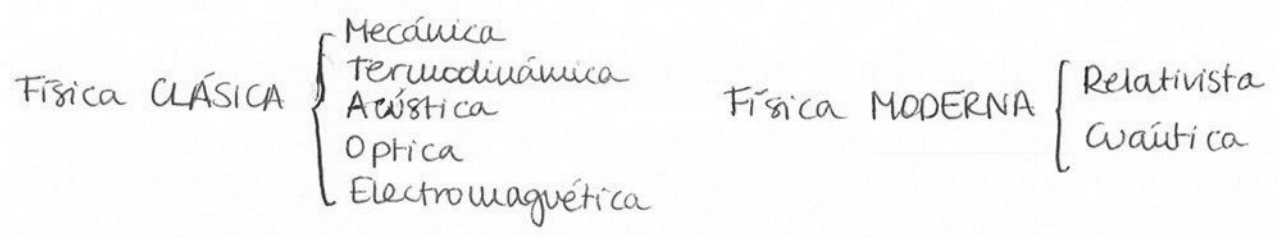 Física CLÁSICA
Mecánica
Termodinámica
Acústica
Optica
Electromagnética
Física MODERNA
Relativista
Cuántica